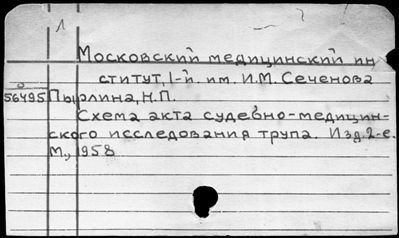 1
Московский медицинский ин
ститут, I-й. им. И.М. Сеченова
56495 Пырлина, Н.П.
Схема акта судебно-медицин-
ского исследования трупа. Изд. 2-е.
М., 1958